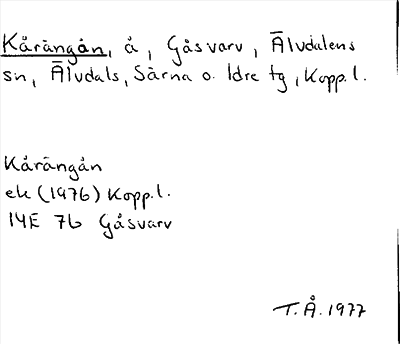 Kårängån, å, Gåsvarv, Älvdalens
sn, Älvdals, Särna o. Idre tg, Kopp.l.
Kårängån
ek (1976) Kopp.l.
14E 7b Gåsvarv
T.Å. 1977